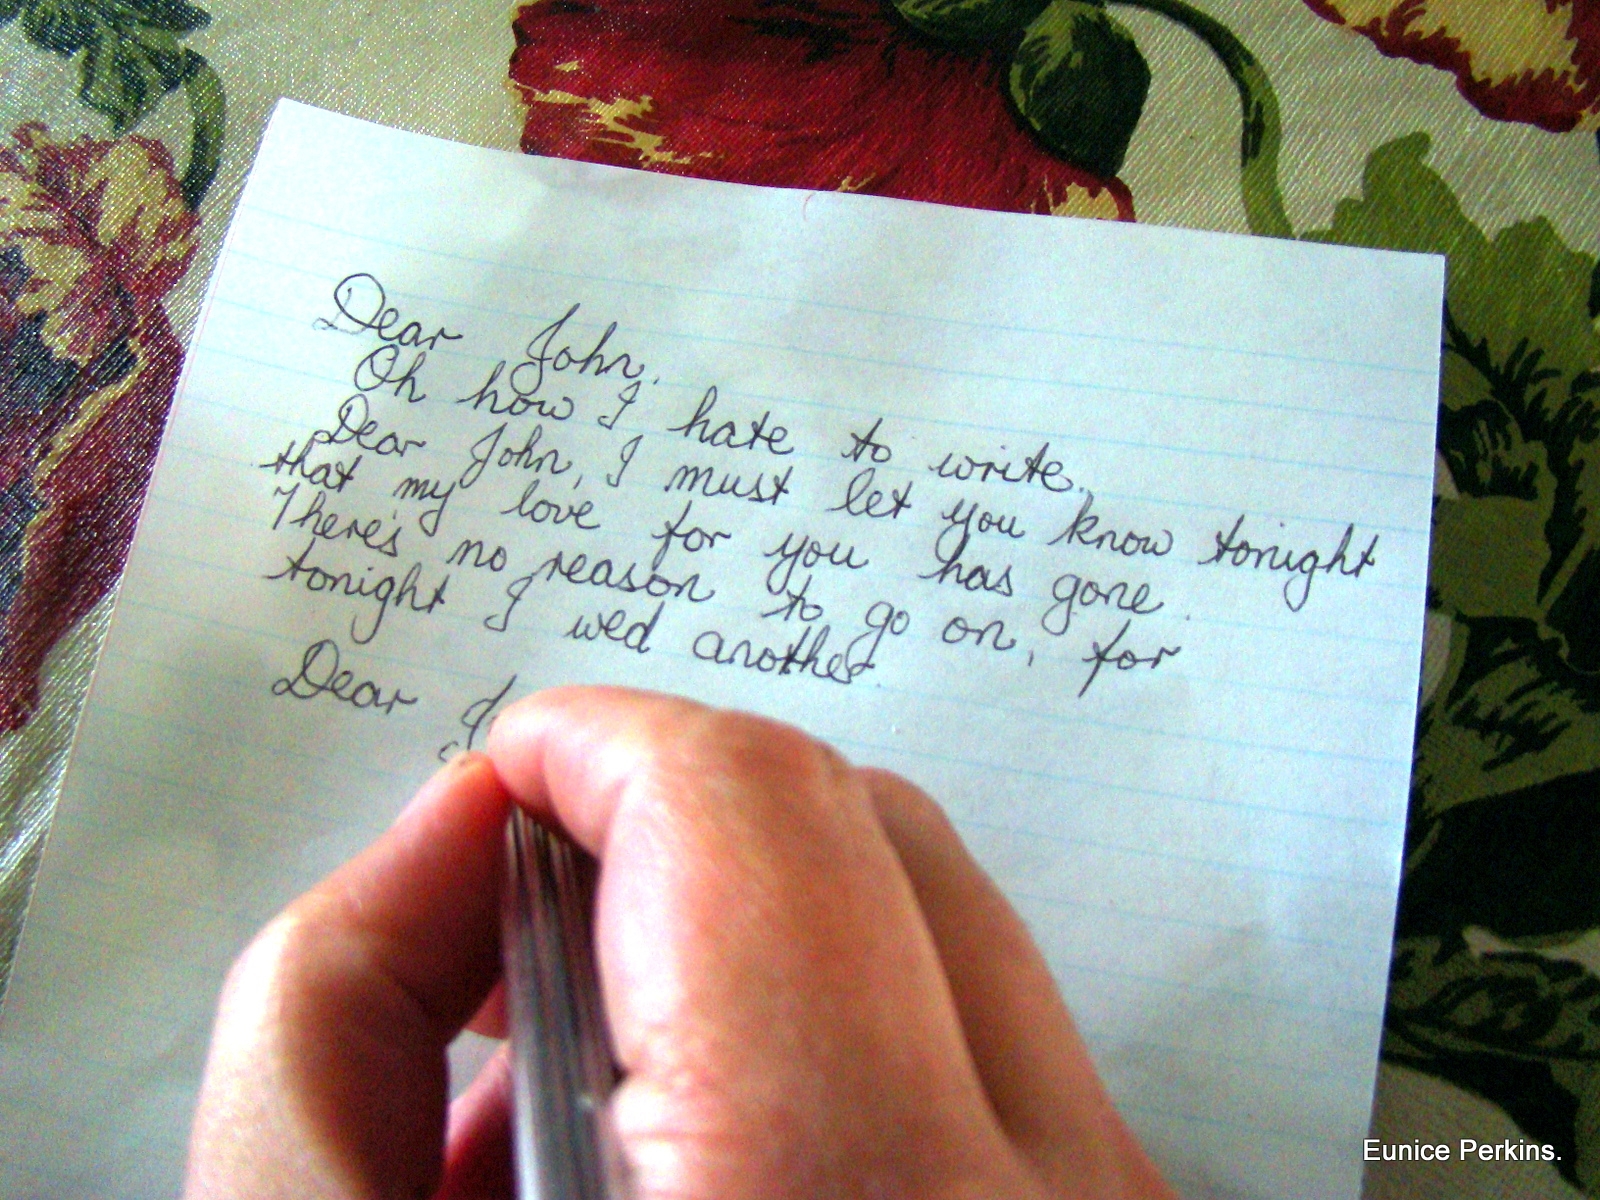 Dear John,
Oh how I hate to write.
Dear John, I must let you know tonight
that my love for you has gone.
There's no reason to go on, for
tonight I wed another.
Dear
Eunice Perkins.